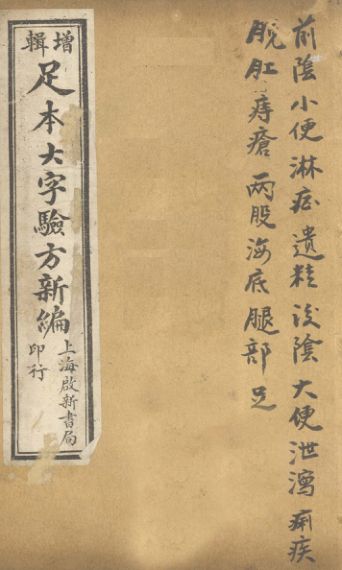 前陰小便淋症遺精後陰大便泄瀉痢疾
脫肛痔瘡兩股海底腿部足
增輯
足本大字驗方新編
上海啟新書局
印行